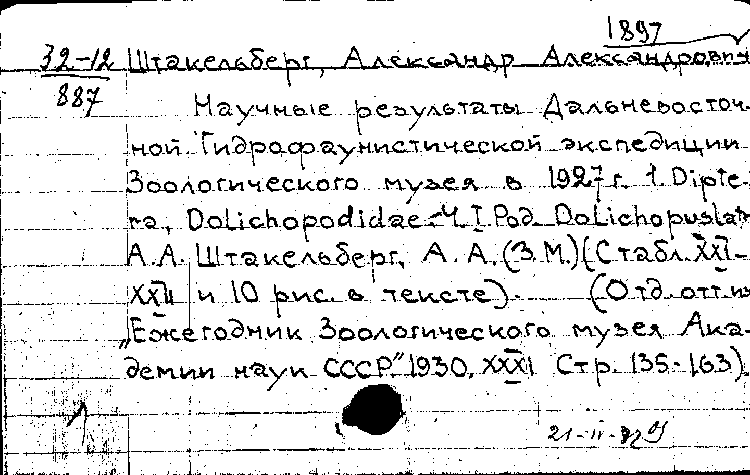 1897
32-12 Штакельберг, Александр Александрович
887
Научные результаты Дальневосточ-
ной Гидрофаунистической экспедиции
Зоологического музея в 1927 г. 1. Dipte-
ra, Dolichopodidae. Ч. I. Род. Dolichopus Latr.
А.А. Штакельберг, А. А. (З.М.) (С табл. XXI-
XXII и 10 рис. в тексте). (Отд. отт. из
„Ежегодник Зоологического музея Ака-
демии наук СССР." 1930, XXXI Стр. 135-163).